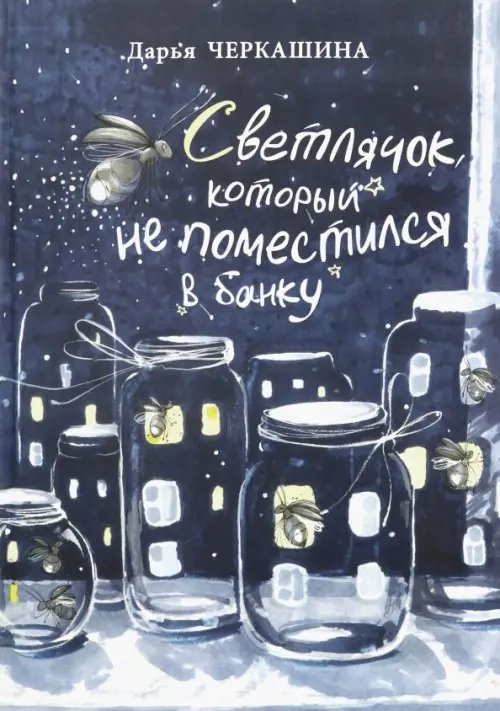 Дарья ЧЕРКАШИНА
Светлячок,
который
не поместился
в банку